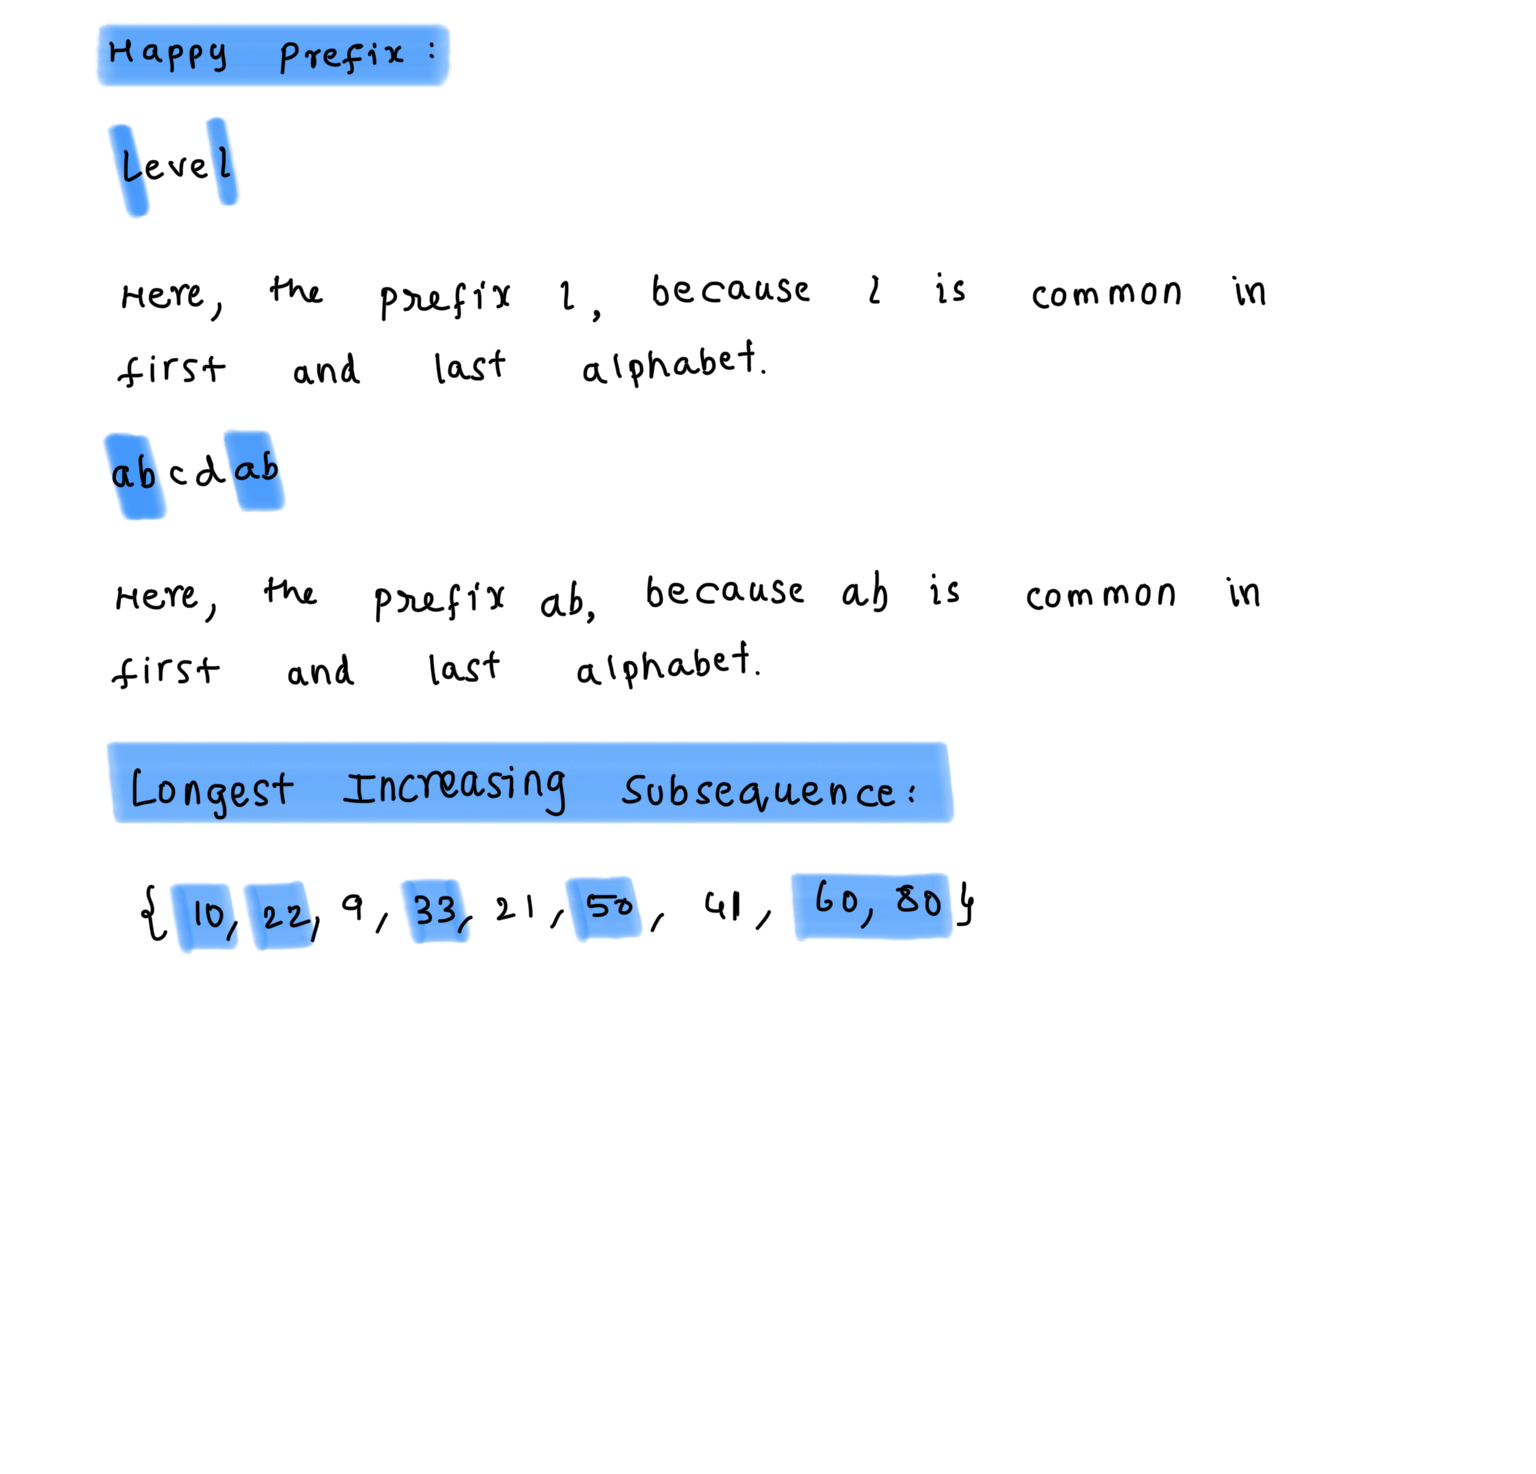 Happy Prefix:
Level
Here, the prefix l, because l is common in
first and last alphabet.
abcdab
Here, the prefix ab, because ab is common in
first and last alphabet.
Longest Increasing Subsequence:
{10, 22, 9, 33, 21, 50, 41, 60, 80}